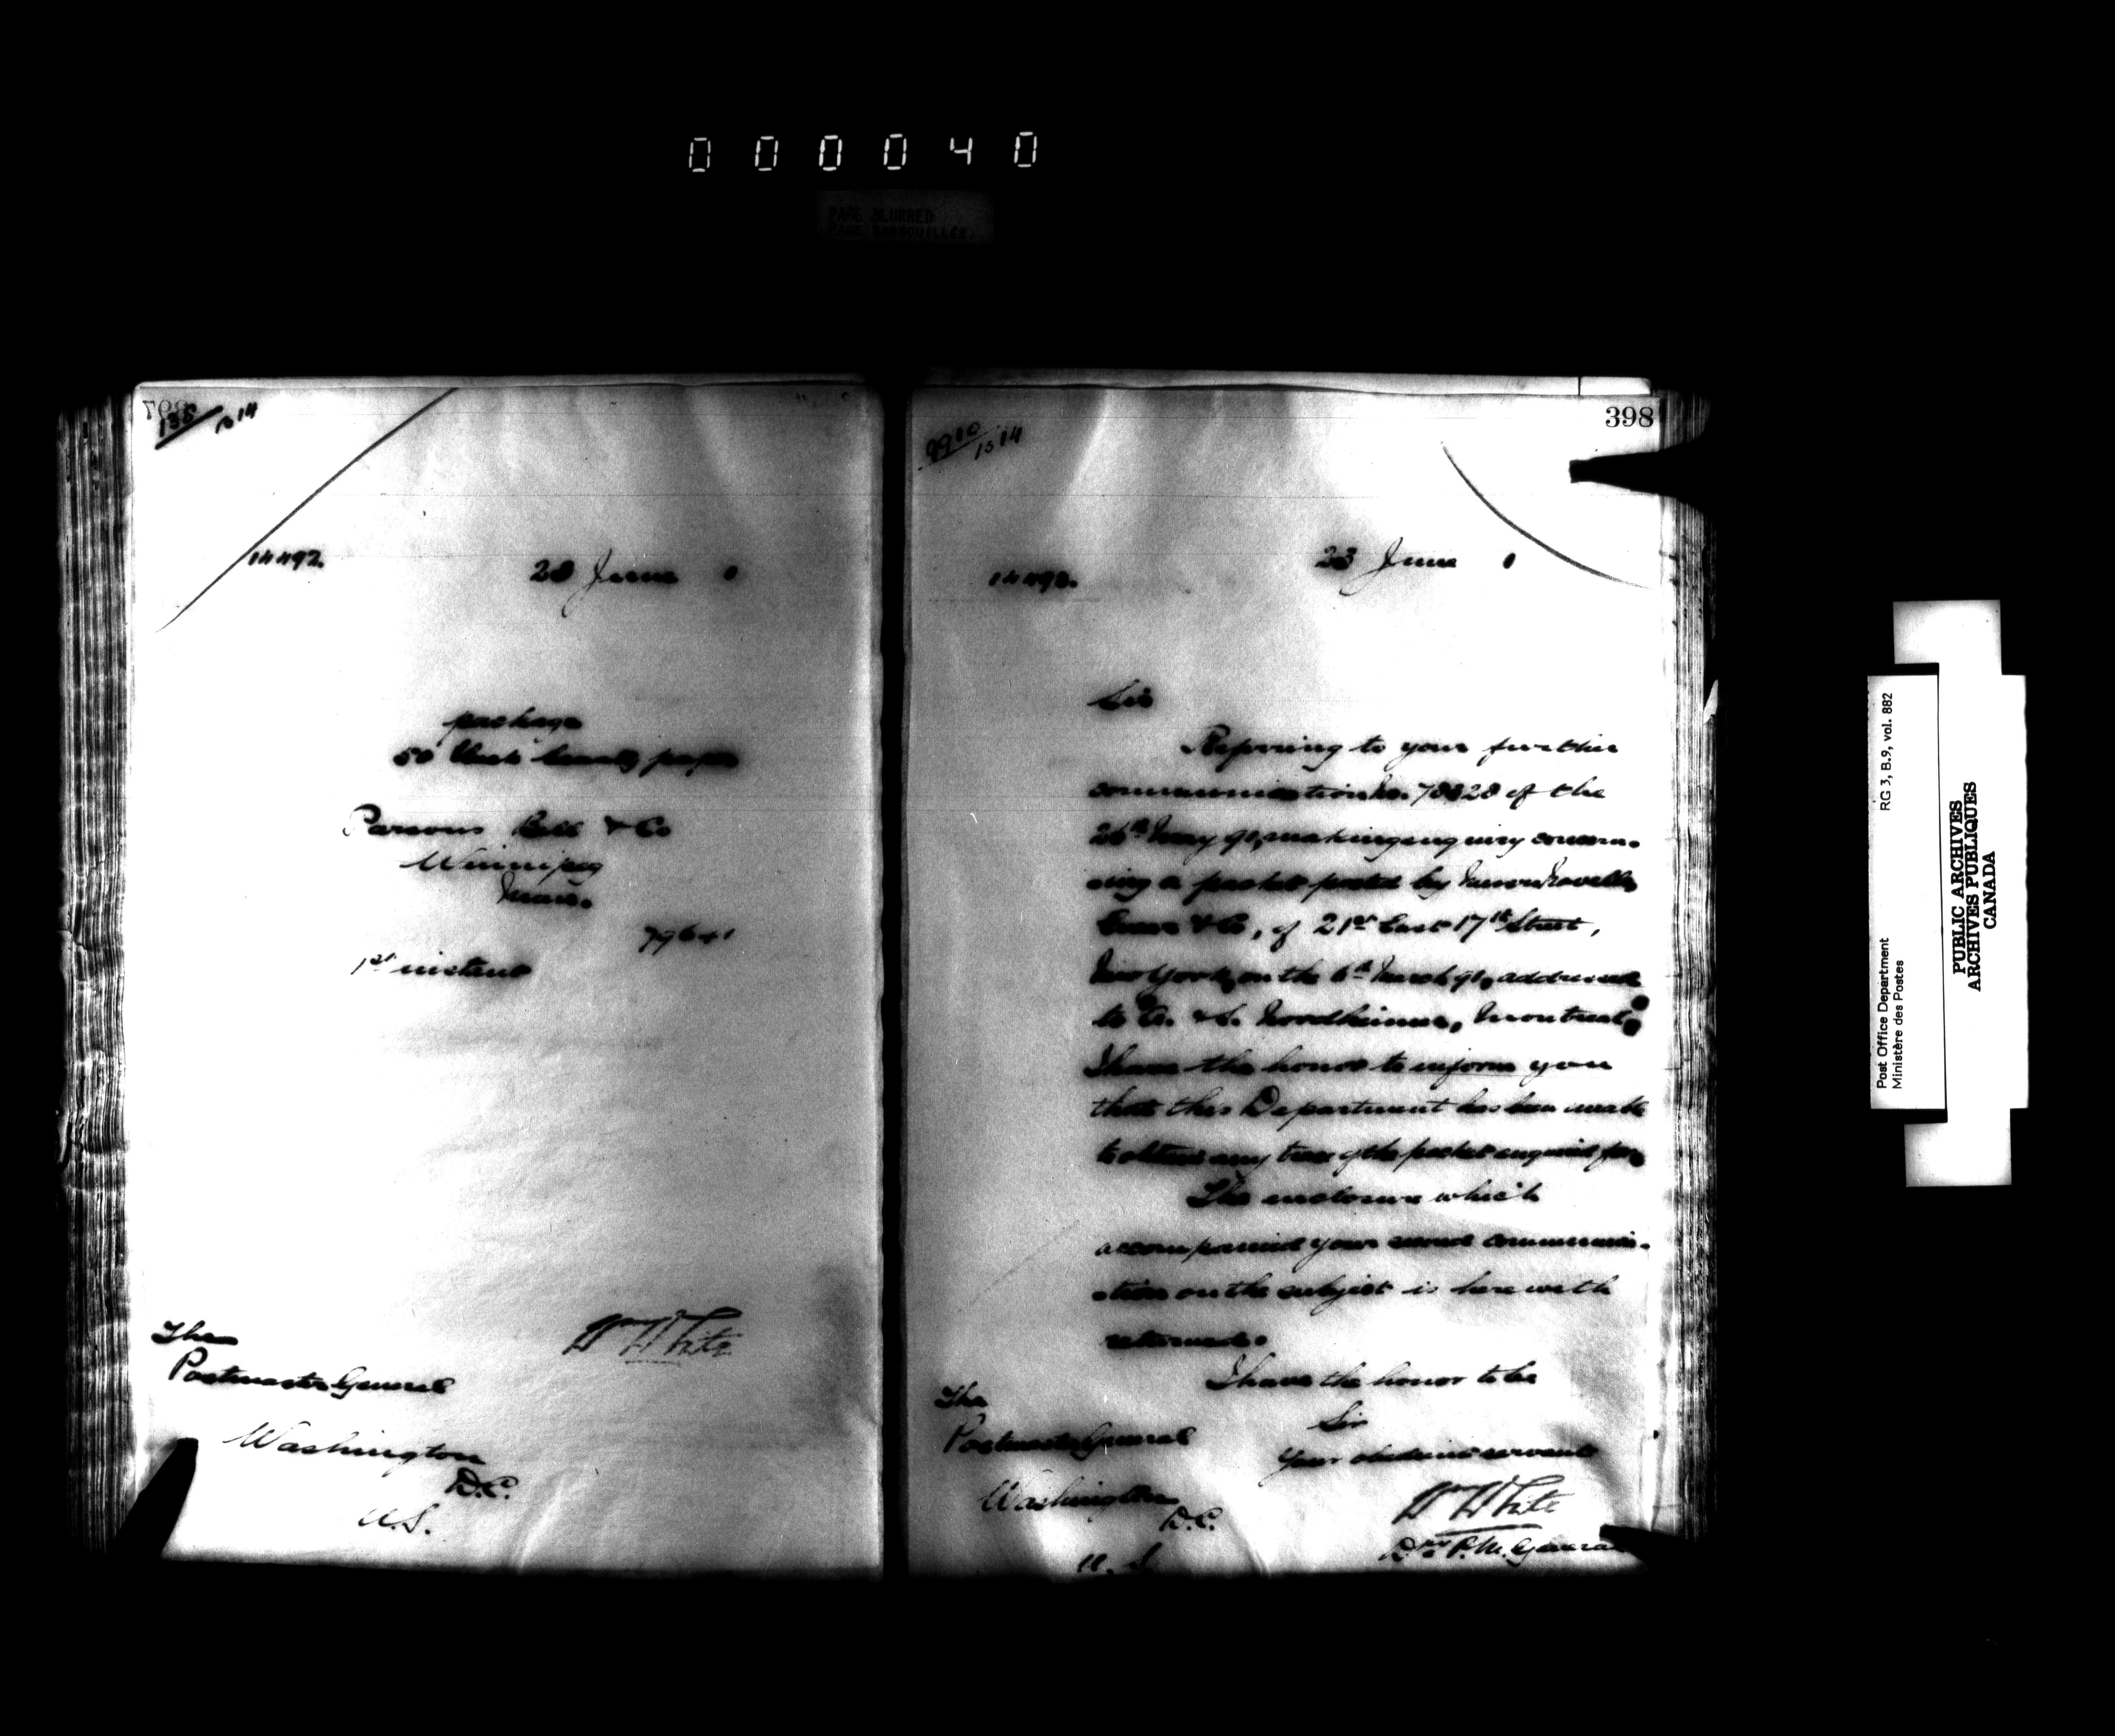 000040
PAGE BLURRED
PAGE BARBOUILLÉE
397
135
1514
14492.
23 June 0
package
50 paper
Parsons Bell & Co
Winnipeg
Man.
79641
1st instant
Wm White
The
Postmaster General
Washington
D.C.
U.S.
398
9910
1514
14493.
23 June 0
Sir
Referring to your further
communication No. of the
26th May 90, making enquiry concern-
ing a packet posted by
& Co, of 21st East 17th Street,
New York, on the 6th March 90, addressed
to A. & S. Nordheimer, Montreal,
I have the honor to inform you
that this Department has been unable
to obtain any trace of the packet enquired for.
The enclosure which
accompanied your second communica-
-tion on the subject is herewith
returned.
I have the honor to be
Sir
Your obedient servant
Wm White
Dy P.M. General
The
Postmaster General
Washington
D.C.
U.S.
RG 3, B.9, vol. 882
Post Office Department
Ministère des Postes
PUBLIC ARCHIVES
ARCHIVES PUBLIQUES
CANADA